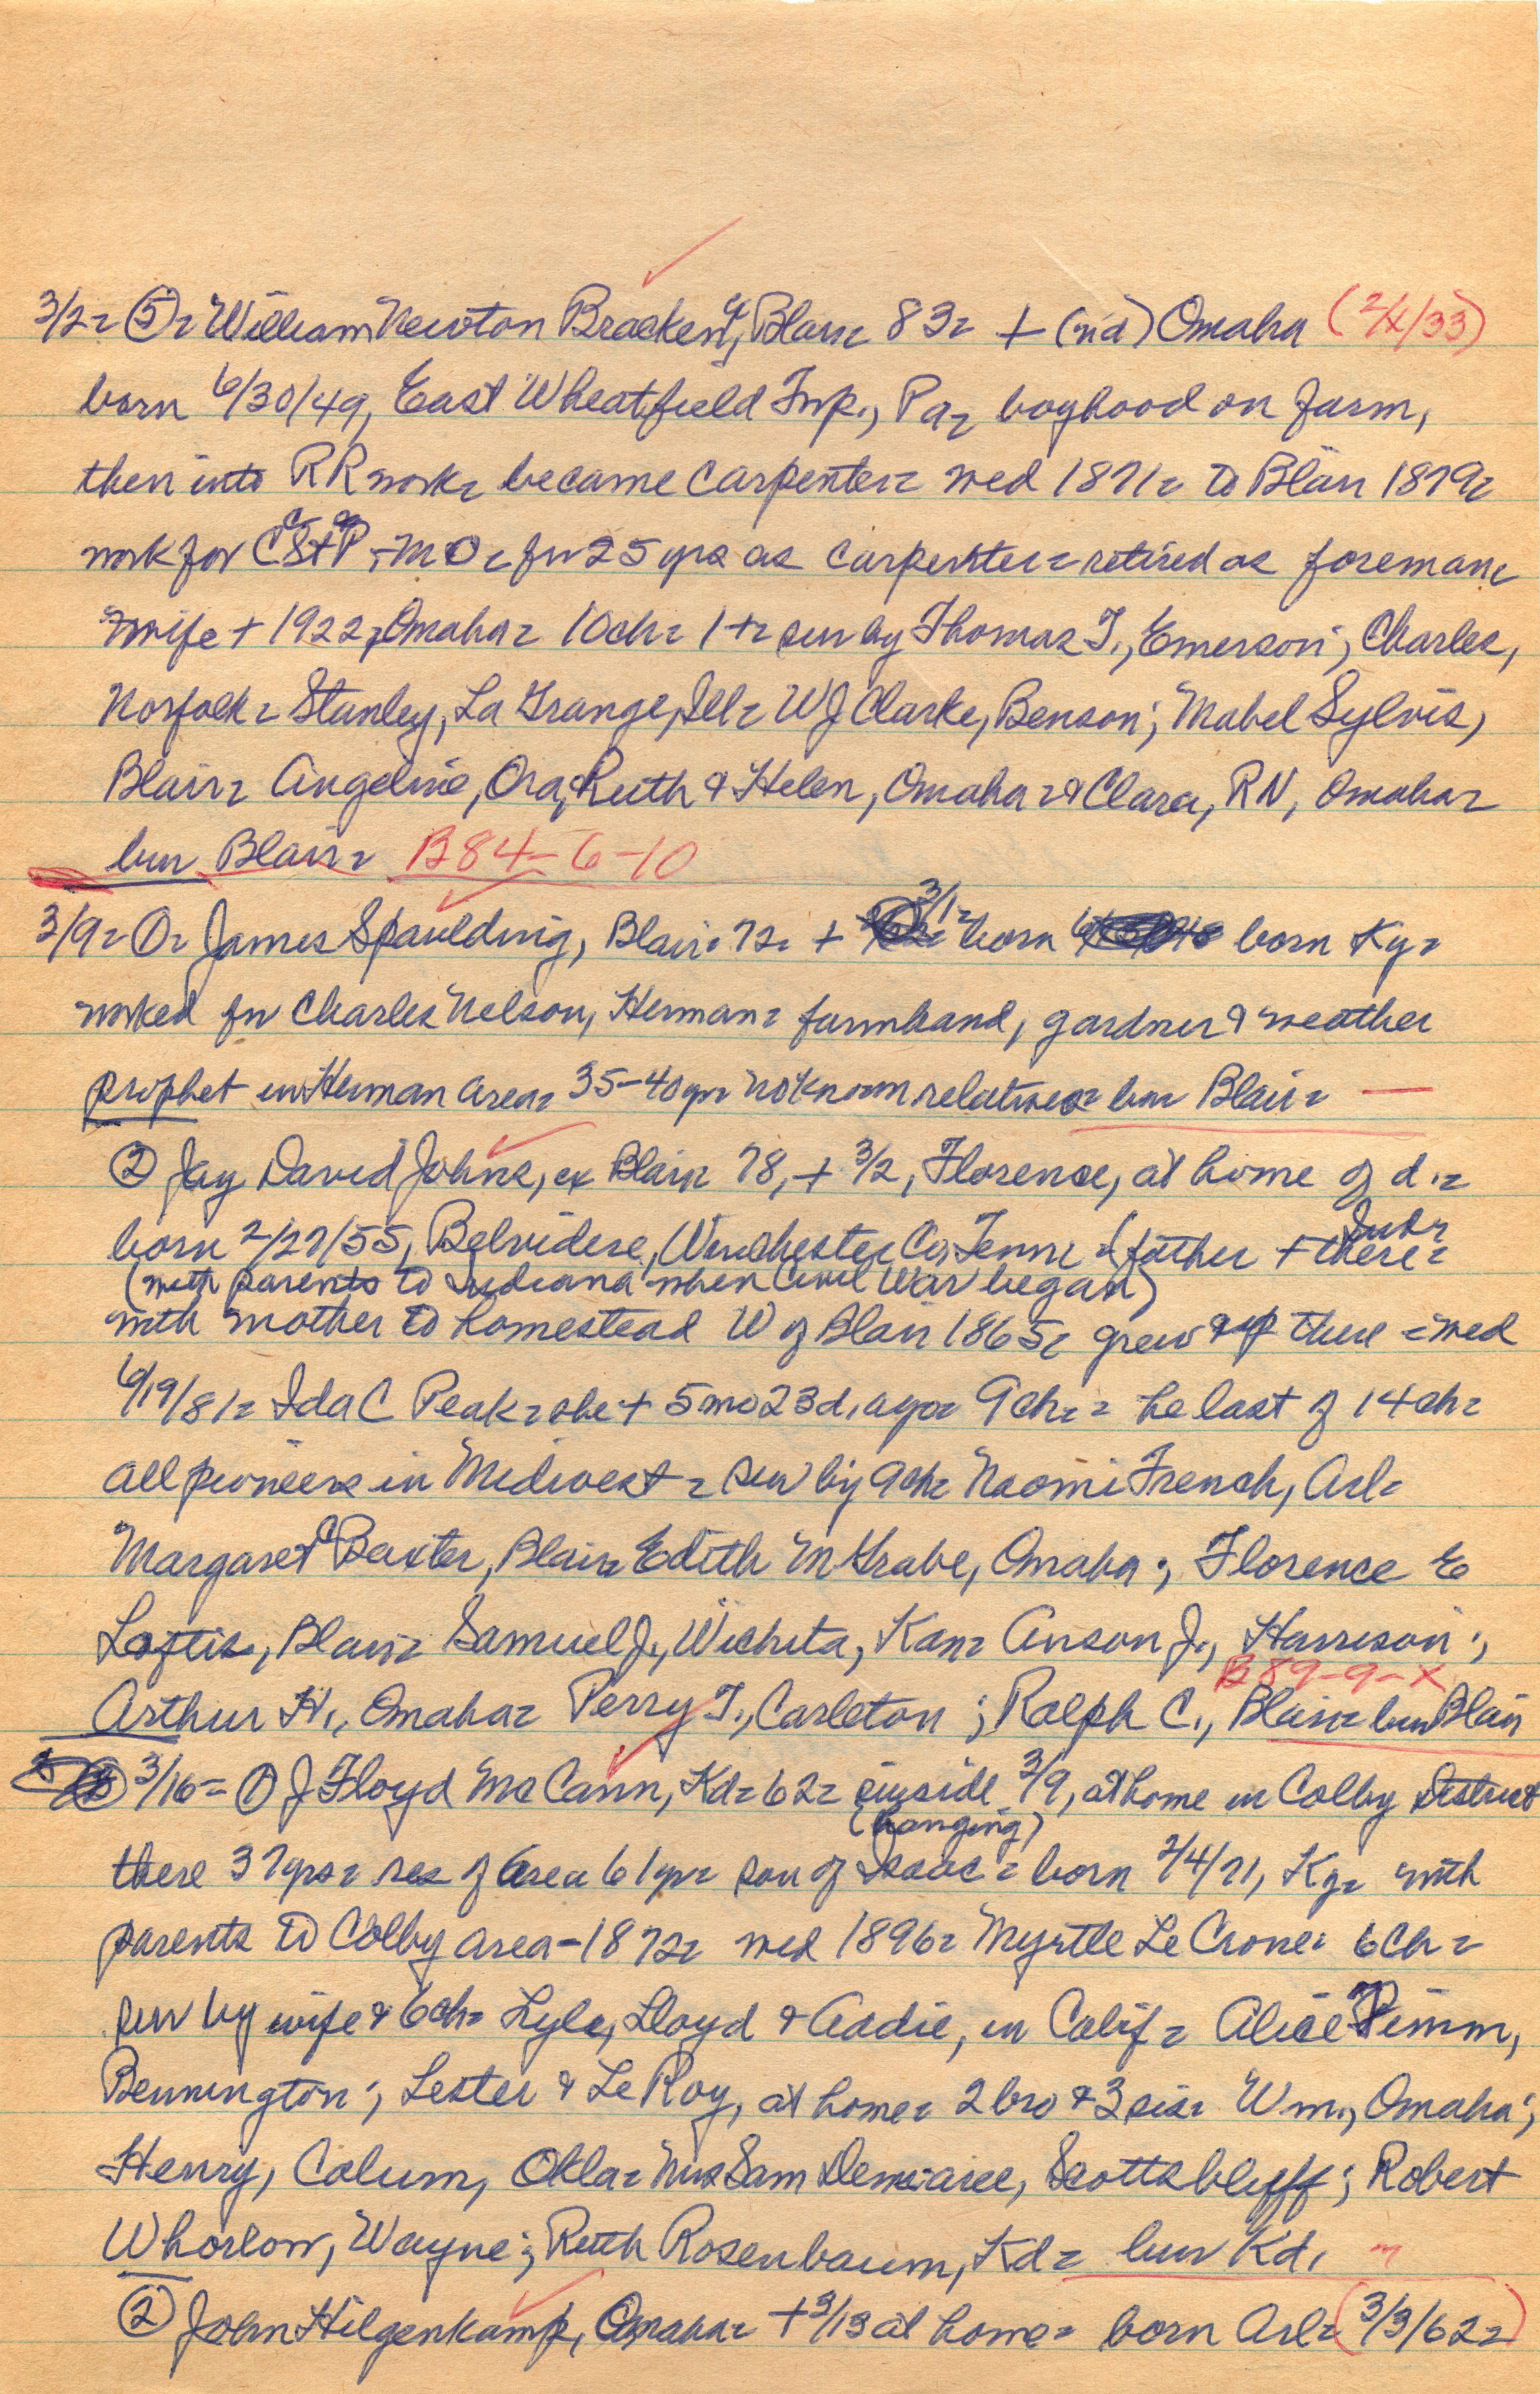 3/2= ⑤= William Newton Bracken, Blair= 83= + (nd) Omaha (2/X/33)
born 6/30/49, East Wheatfield Twp., Pa= boyhood on farm,
then into RR work= became carpenter= wed 1871= to Blair 1879=
work for CStP,MO= for 25 yrs as carpenter= retired as foreman=
wife + 1922, Omaha= 10ch= 1+= sur by Thomas T., Emerson; Charles,
Norfolk= Stanley, La Grange, Ill= WJ Clarke, Benson; Mabel Sylvis,
Blair= Angeline, Ora, Ruth & Helen, Omaha= & Clara, RN, Omaha=
bur Blair= B84-6-10
3/9= O= James Spaulding, Blair= 72= + 3/1= born born Ky=
worked for Charles Nelson, Herman= farmhand, gardner & weather
prophet in Herman area= 35-40 yr= no known relatives= bur Blair= —
② Jay David Johns, ex Blair= 78, + 3/2, Florence, at home of d.=
born 2/27/55, Belvidere, Winchester Co, Tenn= (father + there=
(with parents to Indiana when Civil War began)
with mother to homestead W of Blair 1865= grew up there = wed
6/19/81= Ida C Peak= she + 5mo 23d. ago= 9ch= = he last of 14ch=
all pioneers in Midwest = sur by 9ch= Naomi French, Arl=
Margaret C Baxter, Blair= Edith M Grabe, Omaha; Florence E
Loftis, Blair= Samuel J., Wichita, Kan= Anson J., Harrison;
B89-9-X
Arthur H., Omaha= Perry T., Carleton; Ralph C., Blair= bur Blair
3/16= ① J Floyd McCann, Kd= 62= suicide 3/9, at home in Colby District
(hanging)
there 37yrs= res of area 61yr= son of Isaac= born 2/4/71, Ky= with
parents to Colby area-1872= wed 1896= Myrtle Le Crone= 6ch=
sur by wife & 6ch= Lyle, Lloyd & Addie, in Calif= Alice Pimm,
Bennington; Lester & LeRoy, at home= 2 bro & 3 sis= Wm., Omaha;
Henry, Colum, Okla= Mrs Sam Demaree, Scottsbluff; Robert
Whorlow, Wayne; Ruth Rosenbaum, Kd= bur Kd,
② John Hilgenkamp, Omaha= + 3/13 at home= born Arl= (3/3/62=)